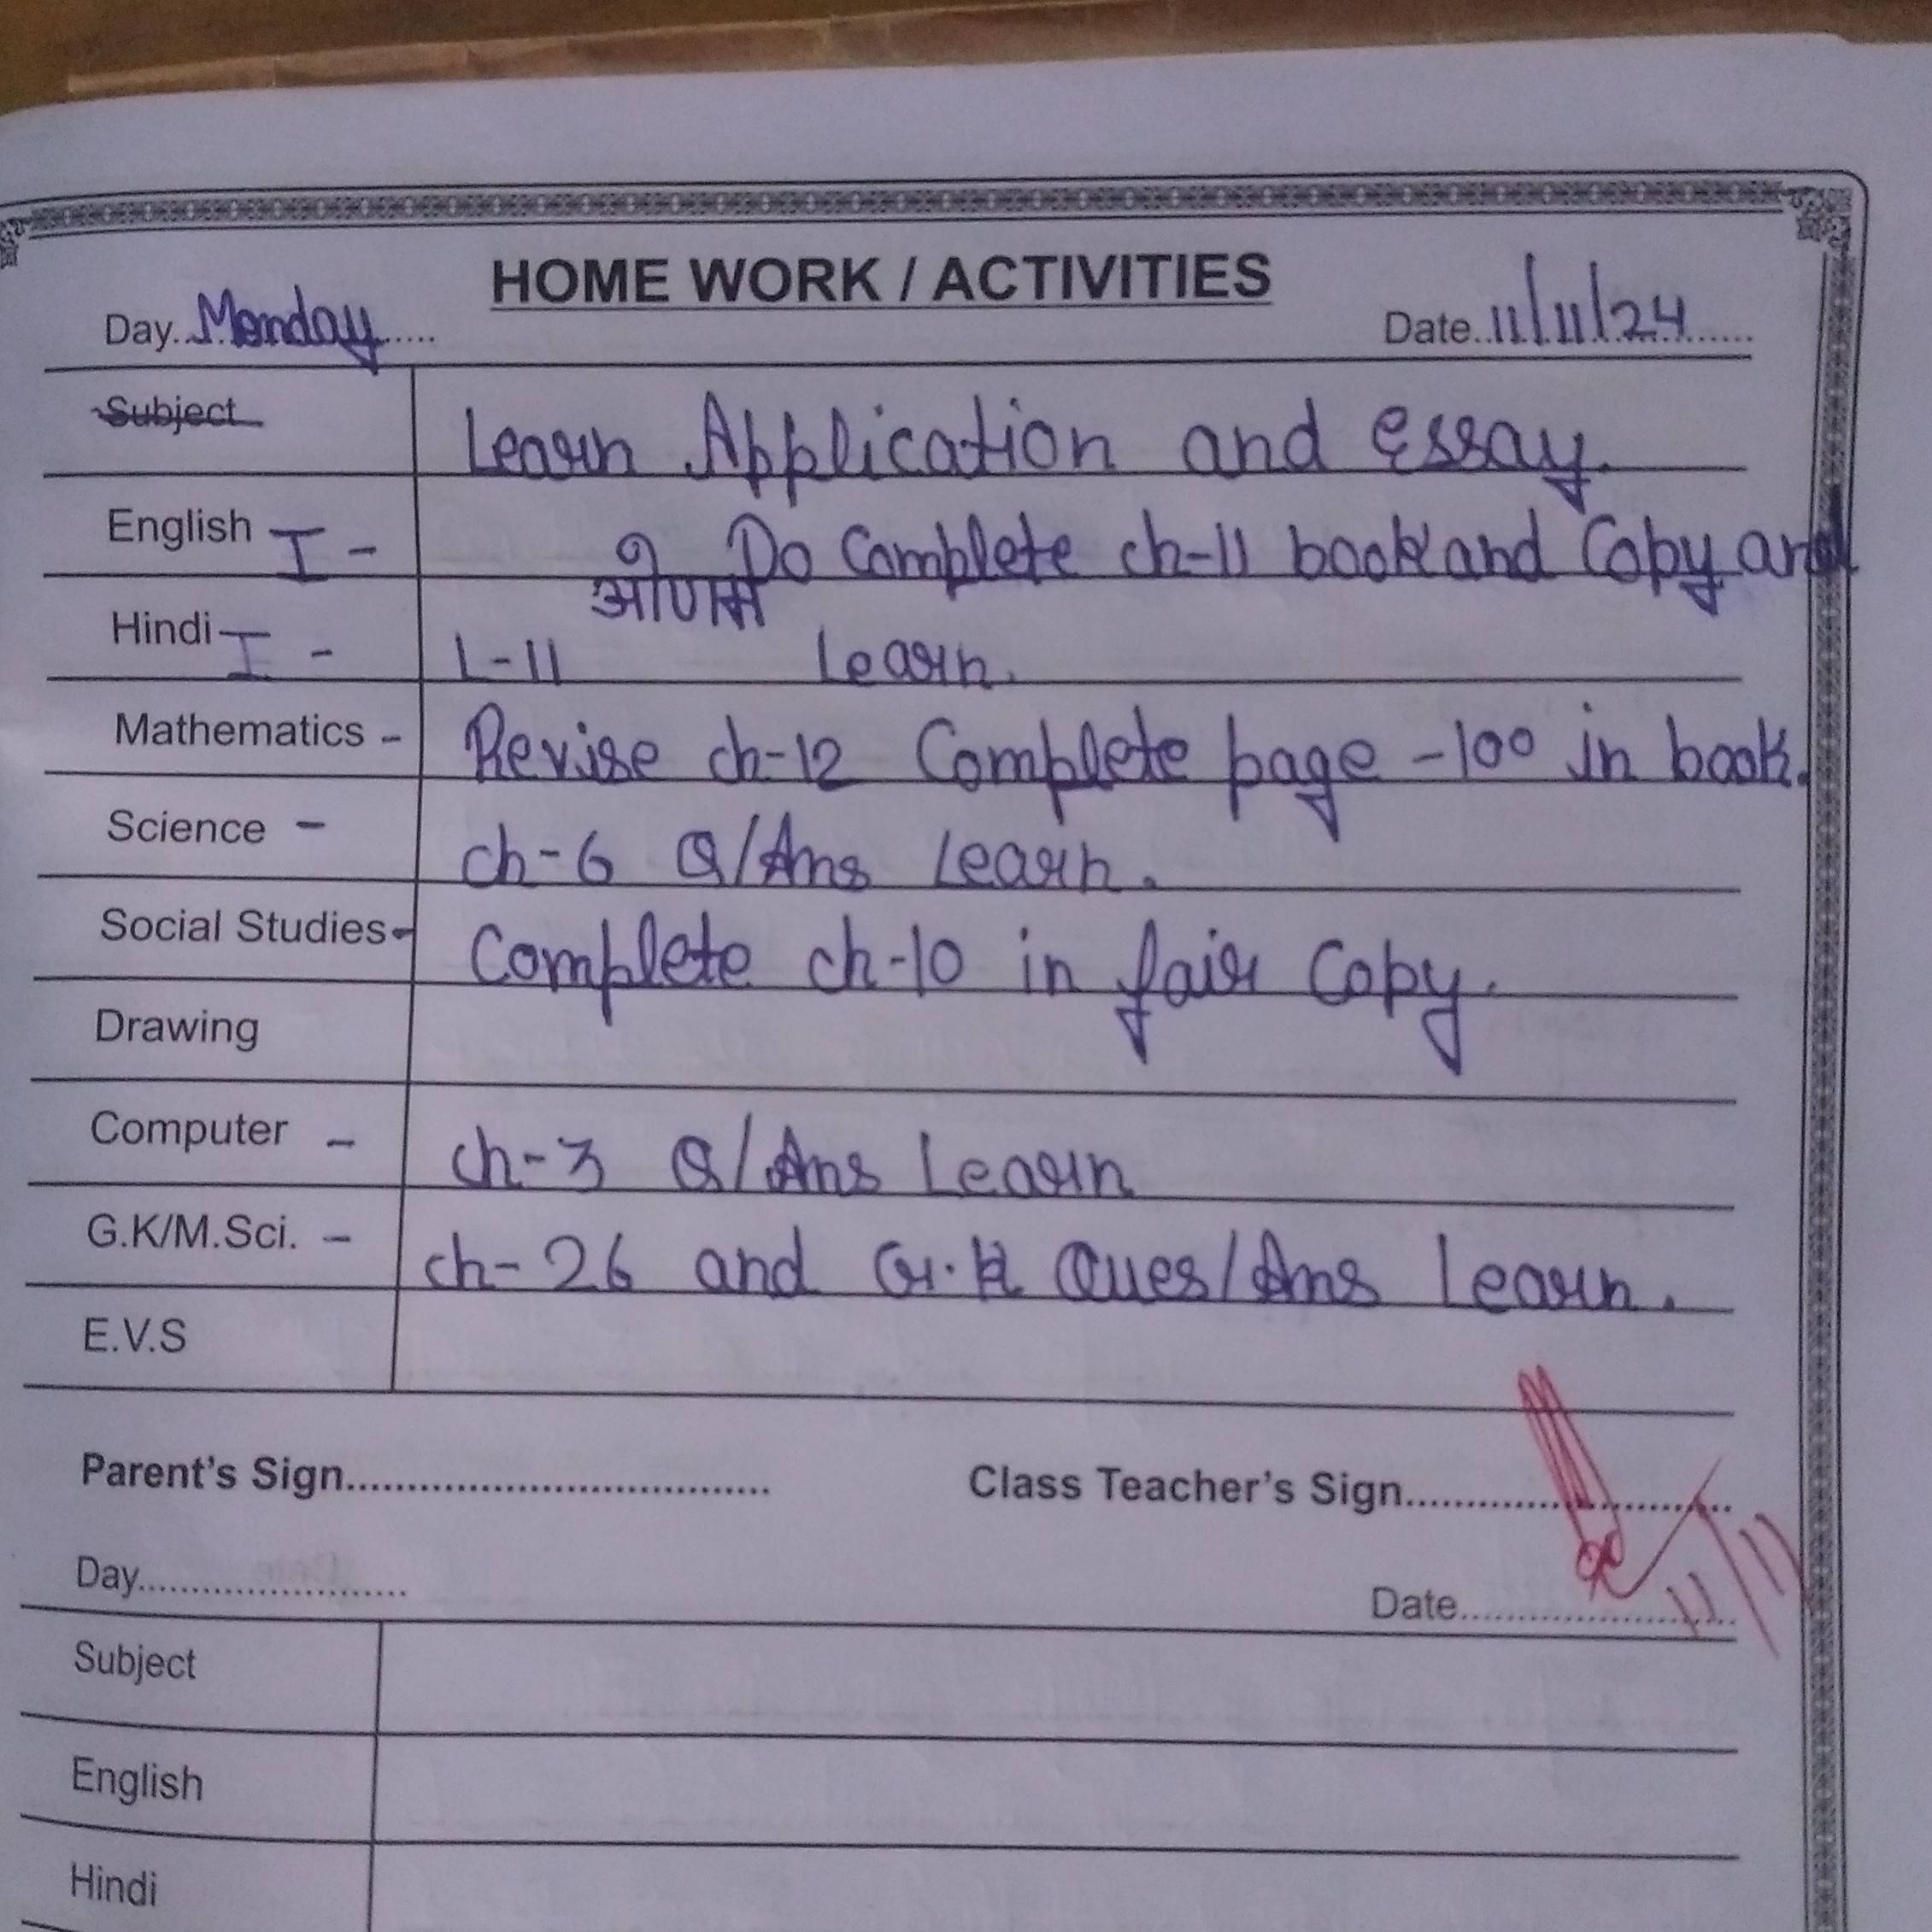 HOME WORK / ACTIVITIES
Day..Monday.....
Date..11/11/24.......
Subject Learn Application and essay.
English I - Do Complete ch-11 book and Copy and
Hindi I - L-11 Learn.
Mathematics - Revise ch-12 Complete page -100 in book.
Science - ch-6 Q/Ans Learn.
Social Studies- Complete ch-10 in fair Copy.
Drawing
Computer - ch-3 Q/Ans Learn
G.K/M.Sci. - ch-26 and G.K Ques/Ans Learn.
E.V.S
Parent's Sign.................................... Class Teacher's Sign...........................
11/11
Day........................ Date........................
Subject
English
Hindi